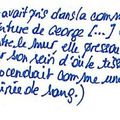 avait pris dans la comm
nture de George [...] 
te le mur, elle pressa
son sein d'où le
cendait comme une
née de sang.)